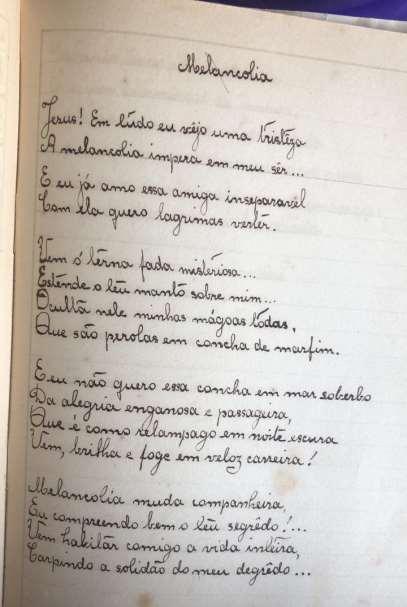 Melancolia
Jesus! Em tudo eu vêjo uma tristêza
A melancolia impera em meu sêr...
E eu já amo essa amiga inseparavel
Com ela quero lagrimas vertêr.
Vem ó terna fada misteriosa...
Estende o teu manto sobre mim...
Oculta nele minhas mágoas tôdas,
Que são perolas em concha de marfim.
E eu não quero essa concha em mar soberbo
Da alegria enganosa e passageira,
Que é como relampago em noite escura
Vem, brilha e foge em veloz carreira!
Melancolia muda companheira,
Eu compreendo bem o teu segrêdo!...
Vem habitar comigo a vida inteira,
Carpindo a solidão do meu degrêdo...